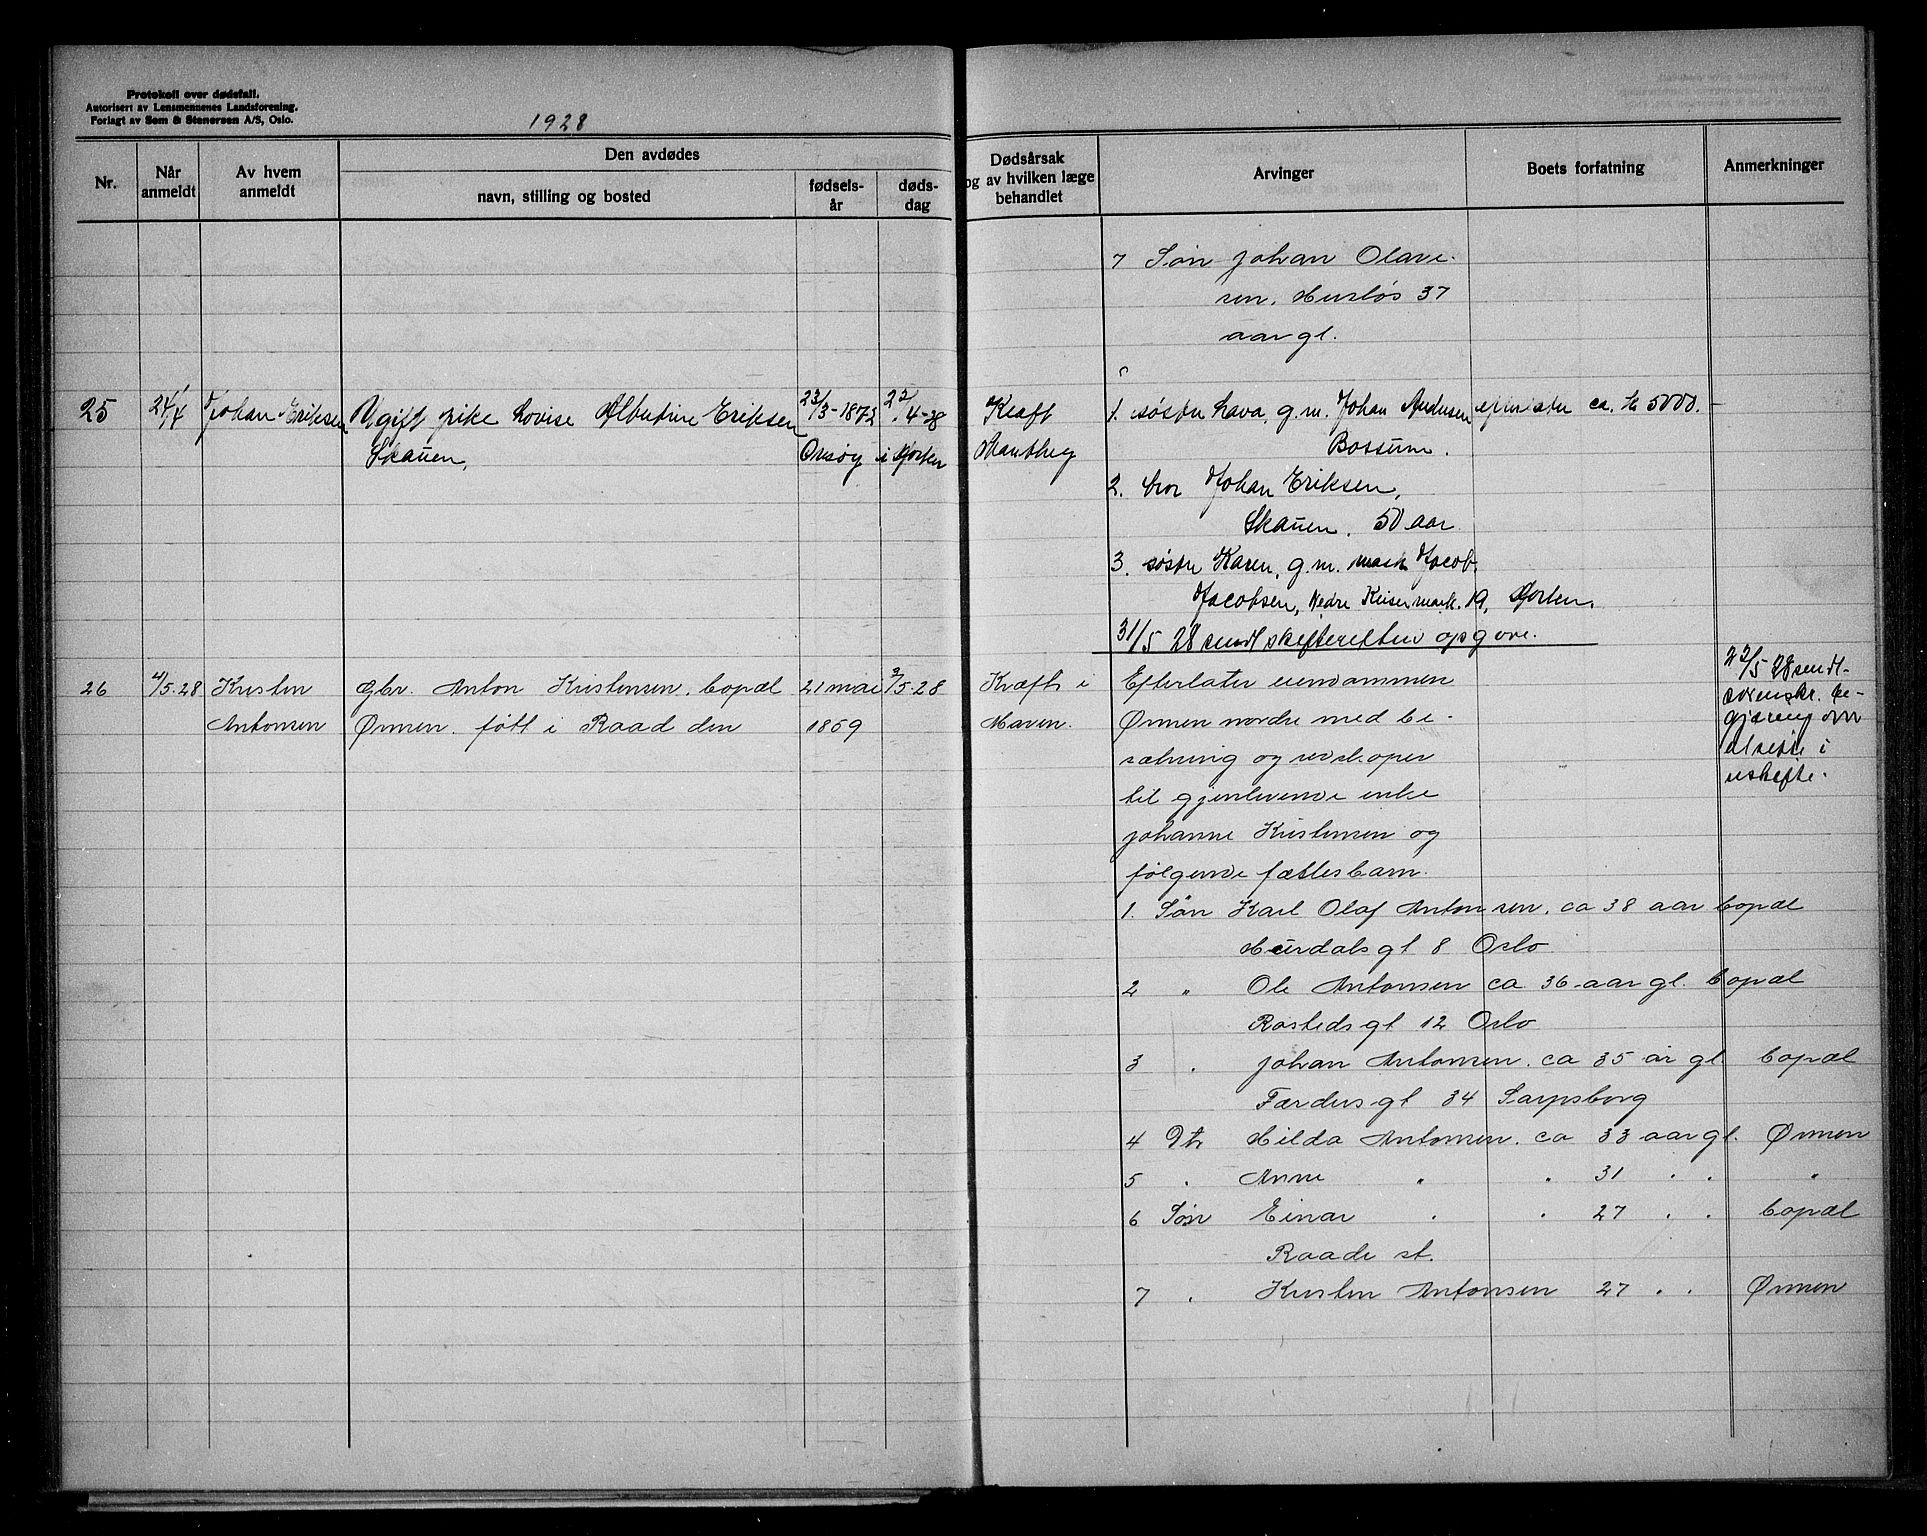 Protokoll over dødsfall.
Autorisert av Lensmennenes Landsforening.
Forlagt av Sem & Stenersen A/S, Oslo.
1928
Nr.
Når anmeldt
Av hvem anmeldt
Den avdødes
navn, stilling og bosted
fødsels-år
døds-dag
Dødsårsak
og av hvilken læge
behandlet
Arvinger
Boets forfatning
Anmerkninger
7 Søn Johan Olave-
sen. Husløs 37
aar gl.
25 24/4 Johan Eriksen Ugift pike Lovise Albertine Eriksen 23/3-1872 22/4-28 Kræft 1. søster Lava, g.m. Johan Andersen efterlater ca. kr 5000.-
Skauen, Onsøy i Horten Bossum.
2. bror Johan Eriksen,
Skauen. 50 aar
3. søster Karen, g.m. mask Jacob
Jacobsen, Nedre Keisermark. 19, Horten.
31/5 28 sendt skifteretten opgave.
26 4/5-28 Kristen gbr. Anton Kristensen. bopæl 21 mai 2/5-28 Kræft i Efterlater eiendommen 22/5 28 sendt
Antonsen Ørmen. født i Raade den 1859 Maven. Ørmen nordre med be-
sætning og redskaper
til gjenlevende enke
Johanne Kristensen og
følgende fællesbarn.
gjæring om
i
uskifte.
1. Søn Karl Olaf Antonsen. ca 38 aar bopæl
Hurdalsgt 8 Oslo
2 " Ole Antonsen ca 36 aar gl. bopæl
Rostedsgt 12 Oslo
3 " Johan Antonsen. ca 35 år gl. bopæl
Færdersgt 34 Sarpsborg
4 Dtr Hilda Antonsen. ca 33 aar gl. Ørmen
5 " Anne " " 31 " " "
6 Søn Einar " " 27 " " bopæl
Raade st.
7 " Kristen Antonsen 27 " " Ørmen